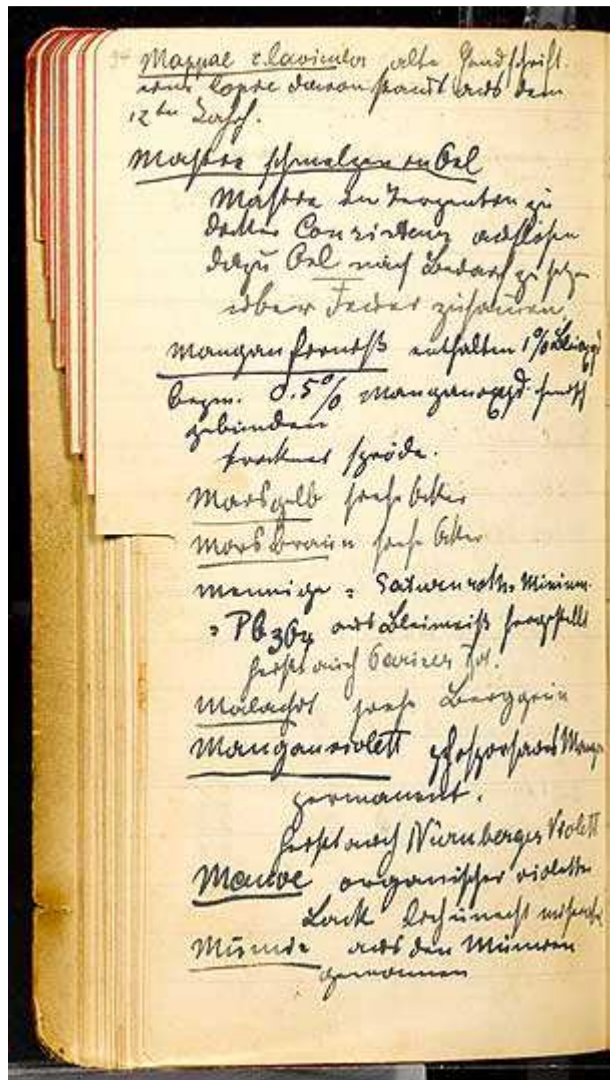 94 Mappae clavicula alte Handschrift.
eine Copie davon stamt aus dem
12ten Jahrh.
Mastix schmelzen in Oel
Mastix in Terpentin zu
dicker Consistenz auflösen
dazu Oel nach Bedarf zu setzen
über Feuer
Manganfirniß enthalten 1% Bleioxyd
bezw. 0.5% Manganoxyd
gebunden
trocknet spröde.
Marsgelb siehe Ocker
Marsbraun siehe Ocker
Mennige = Saturnroth = Minium
= Pb3O4 aus Bleiweiß hergestellt
heißt auch Pariser Rot.
Malachit siehe Berggrün
Manganviolett phosphorsaures Mangan
permanent.
heißt auch Nürnberger Violett
Mauve organischer violetter
Lack lichtunecht
Mumie aus den Mumien
gewonnen